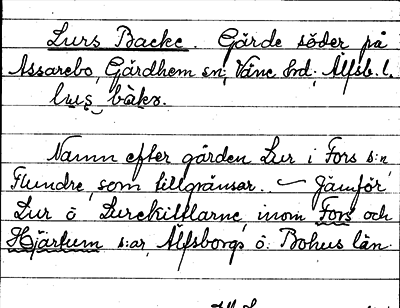 Lurs Backe. Gärde söder på
Assarebo, Gärdhem sn; Väne hd; Älfsb. l.
Namn efter gården Lur i Fors s:n
Flundre, som tillgränsar. – Jämför
Lur o Lurekittlarne, inom Fors och
Hjärtum s:ar, Älfsborgs o. Bohus län